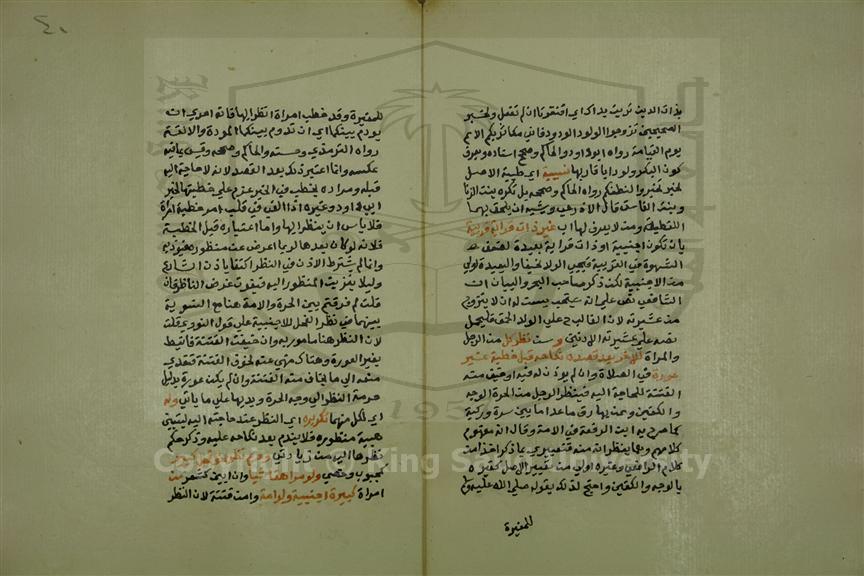 بذات الدين تربت يداك اي افتقرتا ان لم تفعل ولخبر
الصحيحين تزوجوا الولود الودود فاني مكاثر بكم الامم
يوم القيامة رواه ابو داود والحاكم وصحح اسناده ويعرف
كون البكر ولودا باقاربها نسيبة اي طيبة الاصل
لخبر تخيروا لنطفكم رواه الحاكم وصححه بل تكره بنت الزنا
وبنت الفاسق قال الاذرعي ويشبه ان يلحق بهما
اللقيطة ومن لا يعرف لها اب غير ذات قرابة قريبة
بان تكون اجنبية او ذات قرابة بعيدة لضعف
الشهوة في القريبة فيجي الولد نحيفا والبعيدة اولي
من الاجنبية لكن ذكر صاحب البحر والبيان ان
الشافعي نص علي انه يستحب له ان لا يتزوج
من عشيرته لان الغالب ح علي الولد الحمق فيحمل
نصه علي عشيرته الادنين وسن نظر كل من الرجل
والمراة للاخر بعد قصده نكاحه قبل خطبة غير
عورة في الصلاة وان لم يوذن له فيه او خيف منه
الفتنة للحاجة اليه فينظر الرجل من الحرة الوجه
والكفين وممن بها رق ما عدا ما بين سرة وركبة
كما صرح به ابن الرفعة في الامة وقال انه مفهوم
كلامهم وهما ينظرانه منه فتعبيري بما ذكر اخذا من
كلام الرافعي وغيره اولي من تعبير الاصل كغيره
بالوجه والكفين واحتج لذلك بقوله صلي الله عليه وسلم
للمغيرة
٤٠
للمغيرة وقد خطب امراة انظر اليها فانه احري ان
يودم بينكما اي ان تدوم بينكما المودة والالفة
رواه الترمذي وحسنه والحاكم وصححه وقيس بما فيه
عكسه وانما اعتبر ذلك بعد القصد لانه لا حاجة اليه
قبله ومراده بخطب في الخبر عزم علي خطبتها لخبر
ابي داود وغيره اذا القي في قلب امرء خطبة امراة
فلا باس ان ينظر اليها واما اعتباره قبل الخطبة
فلانه لو كان بعدها لربما اعرض عن منظوره فيوذيه
وانما لم يشترط الاذن في النظر اكتفا باذن الشارع
وليلا يتزين المنظور اليه فيفوت غرض الناظر فان
قلت لم فرقتم بين الحرة والامة هنا مع التسوية
بينهما في نظر الفحل للاجنبية علي قول النووي قلت
لان النظر هنا مامور به وان خيفت الفتنة فانيط
بغير العورة وهناك منهي عنه لخوف الفتنة فتعدي
منعه الي ما يخاف منه الفتنة وان لم يكن عورة بدليل
حرمة النظر الي وجه الحرة ويديها علي ما ياتي وله
اي لكل منهما تكريره اي النظر عند حاجته اليه ليتبين
هيئة منظوره فلا يندم بعد نكاحه عليه وذكر حكم
نظرها اليه من زيادتي وحرم نظر نحو فحل كبير
كمجبوب وخصي ولو مراهقا شيا وان ابين كشعر من
امراة كبيرة اجنبية ولو امة وامن فتنة لان النظر